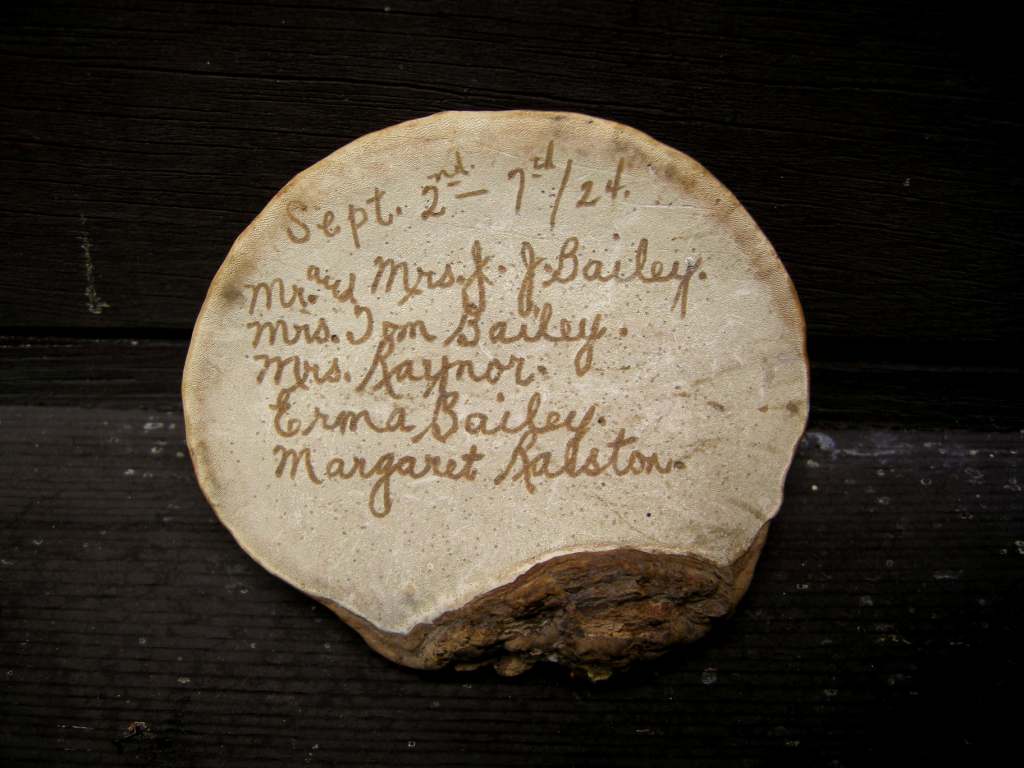 Sept. 2nd. - 7th/24.
Mr. and Mrs. J. J. Bailey.
Mrs. Tom Bailey.
Mrs. Raynor.
Erma Bailey.
Margaret Ralston.